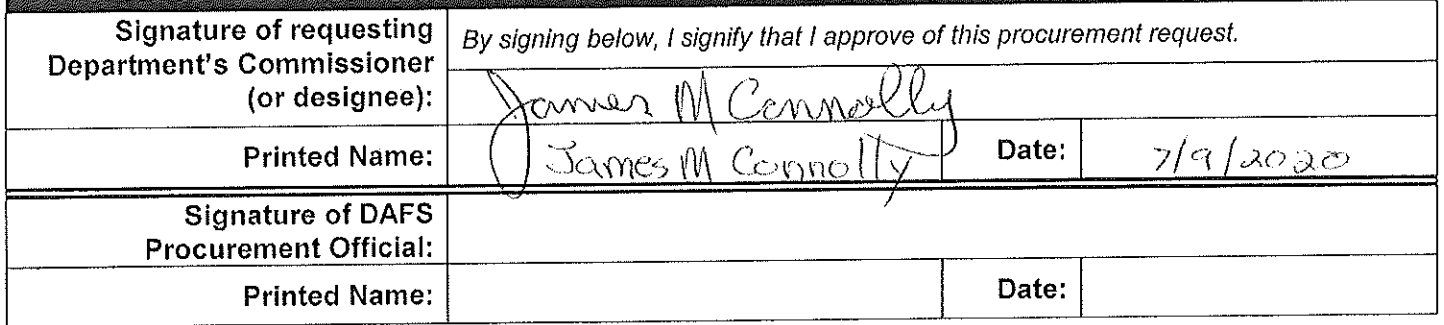 Signature of requesting
Department's Commissioner
(or designee):
By signing below, I signify that I approve of this procurement request.
James M Connolly
Printed Name:
James M Connolly
Date:
7/9/2020
Signature of DAFS
Procurement Official:
Printed Name:
Date: